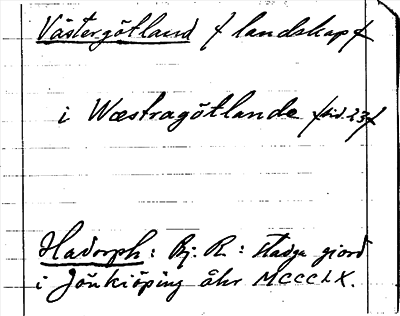 Västergötland / landskap /
i Wæstragötlande /sid. 23/
Hadorph: Bj. R.: stadga giord
i Jönkiöping åhr MCCCLX.